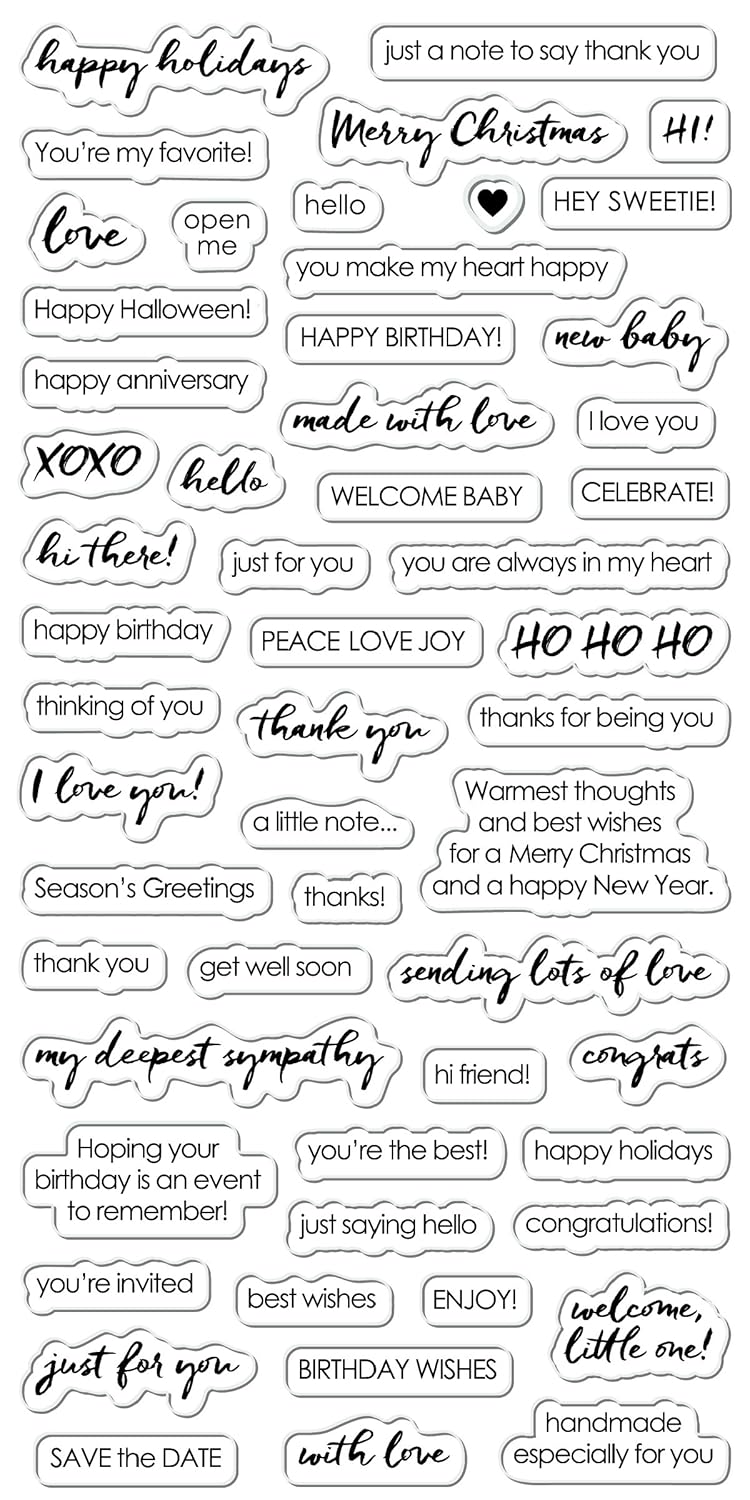 happy holidays
just a note to say thank you
Merry Christmas
HI!
You're my favorite!
hello
HEY SWEETIE!
love
open
me
you make my heart happy
Happy Halloween!
HAPPY BIRTHDAY!
new baby
happy anniversary
made with love
I love you
XOXO
hello
WELCOME BABY
CELEBRATE!
hi there!
just for you
you are always in my heart
happy birthday
PEACE LOVE JOY
HO HO HO
thinking of you
thank you
thanks for being you
I love you!
a little note...
Warmest thoughts
and best wishes
for a Merry Christmas
and a happy New Year.
Season's Greetings
thanks!
thank you
get well soon
sending lots of love
my deepest sympathy
hi friend!
congrats
Hoping your
birthday is an event
to remember!
you're the best!
happy holidays
just saying hello
congratulations!
you're invited
best wishes
ENJOY!
welcome,
little one!
just for you
BIRTHDAY WISHES
SAVE the DATE
with love
handmade
especially for you